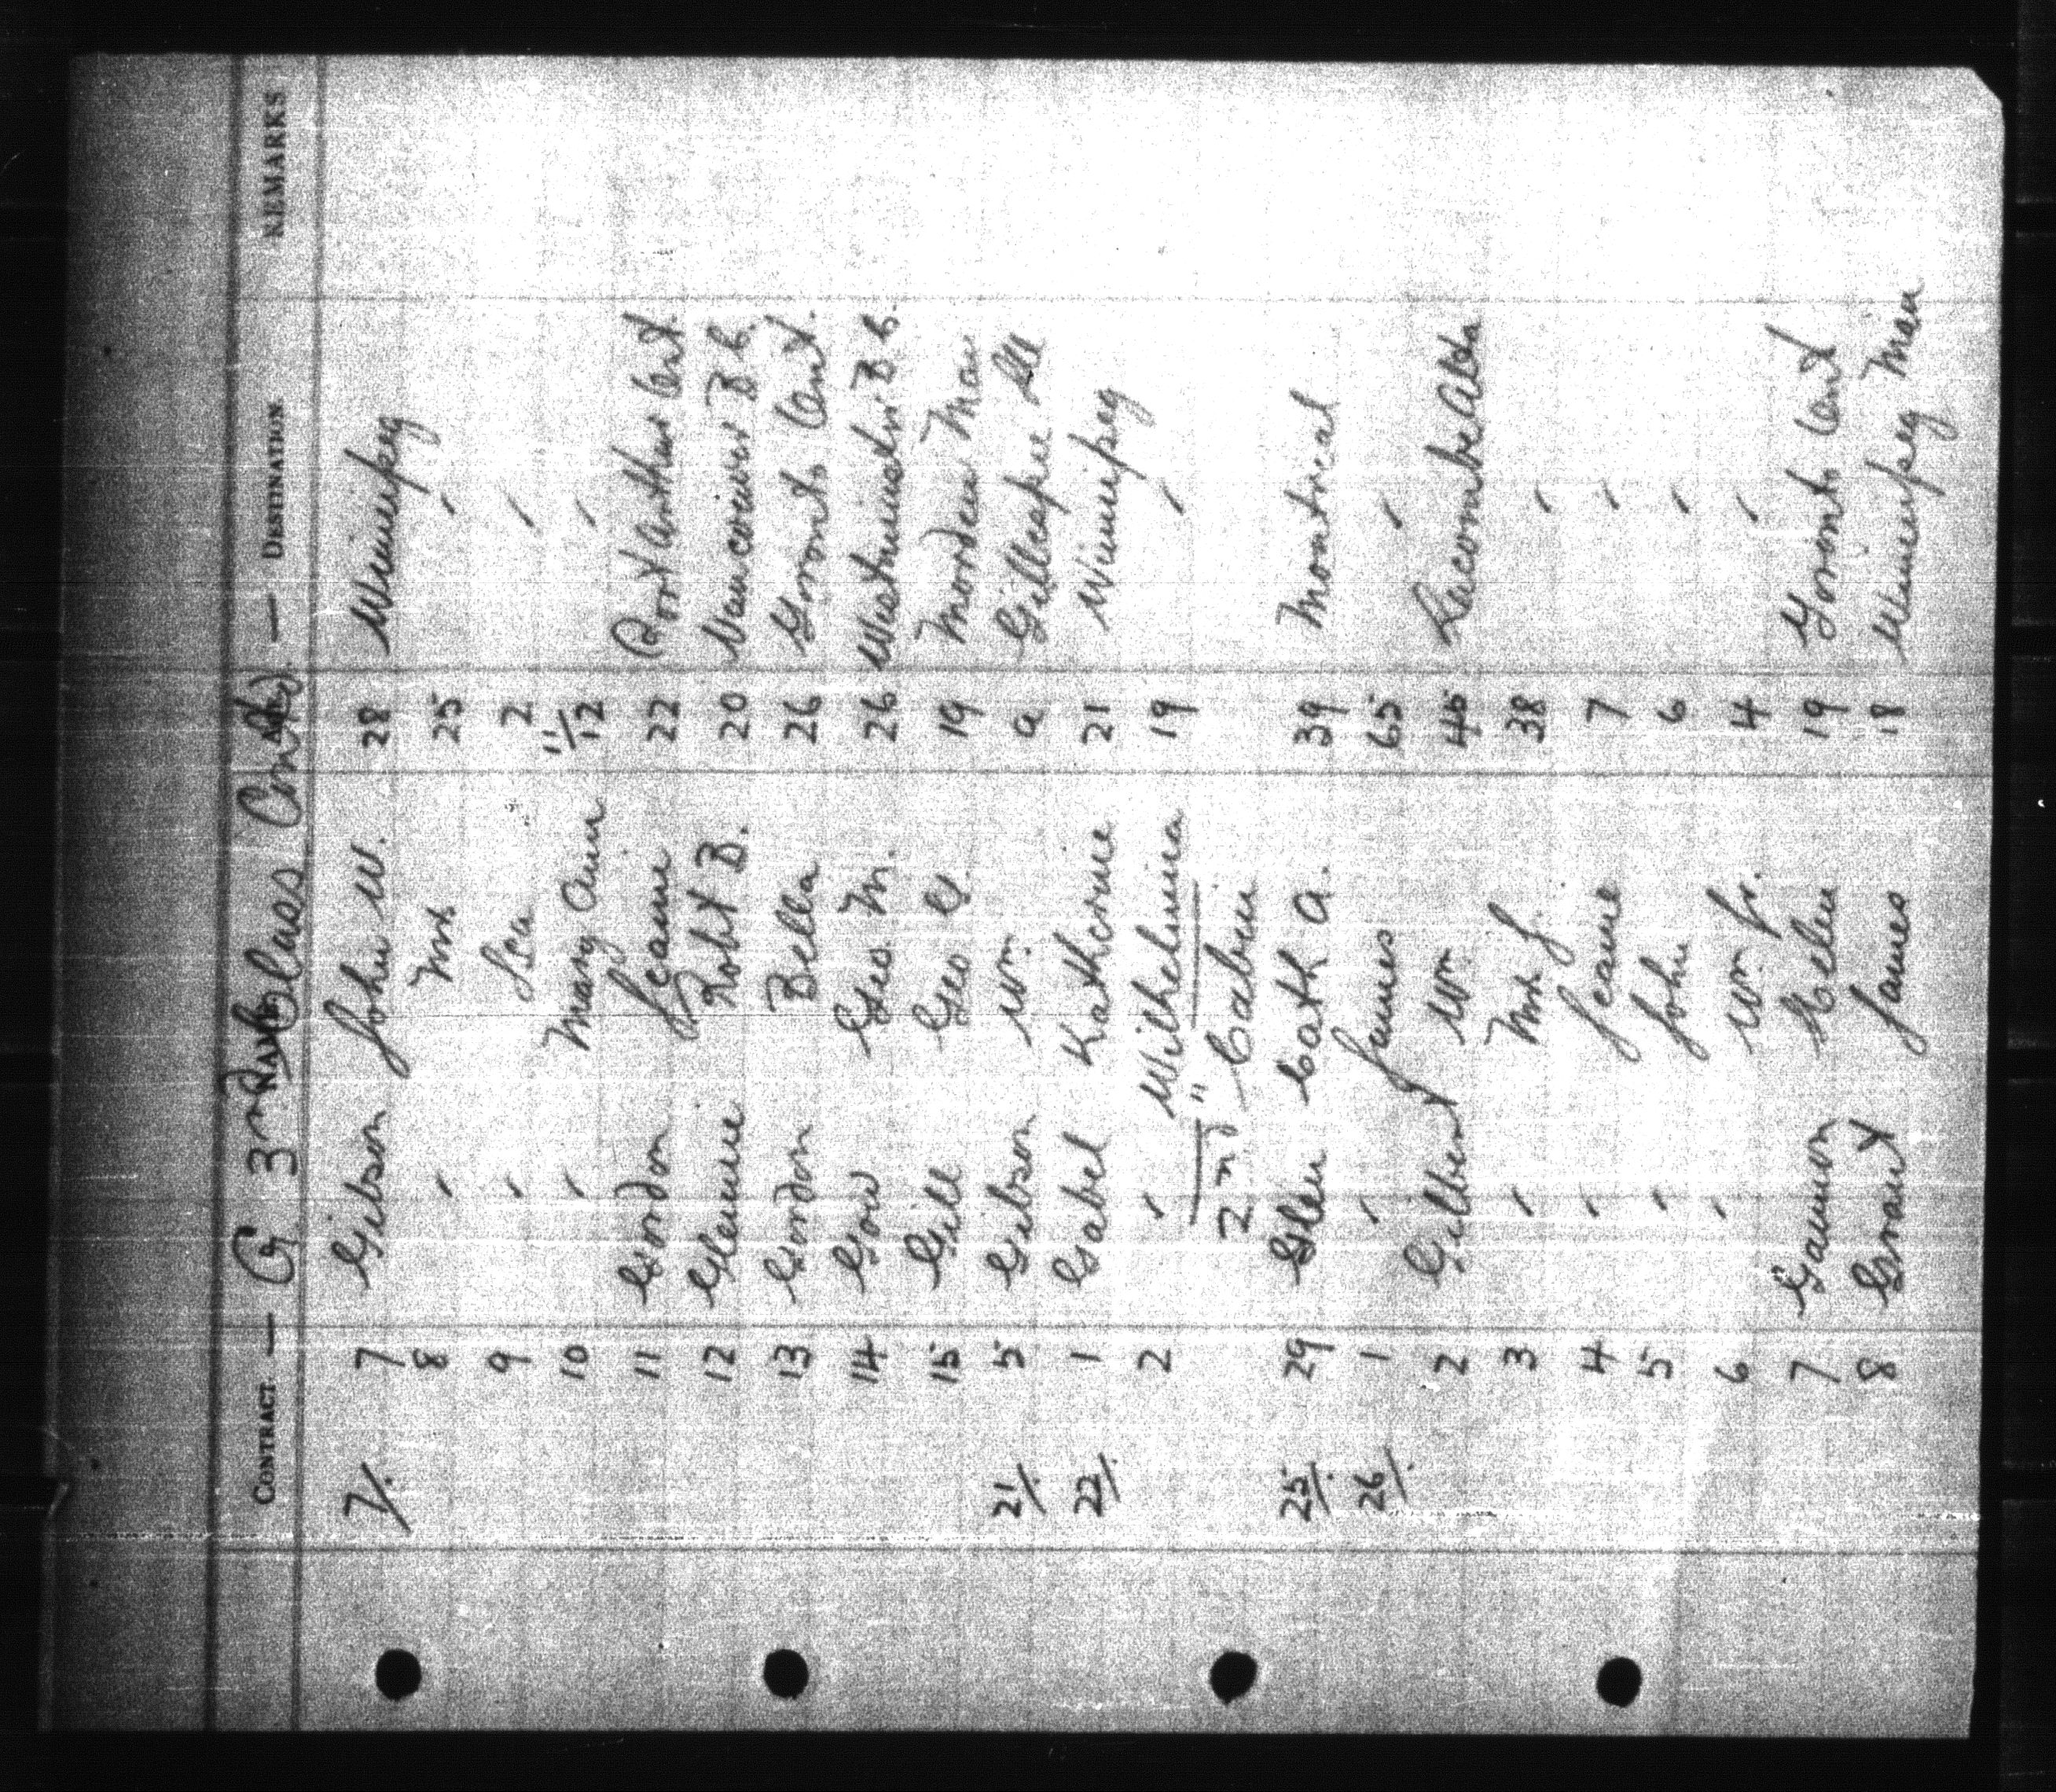 CONTRACT. — G 3rd Class Cont'd. NAME AGE. — DESTINATION REMARKS
7/. 7 Gibson John W. 28 Winnipeg
8 " Mrs. 25 "
9 " 2 "
10 " Mary Ann 11/12 "
11 Gordon Jeanie 22 Port Arthur Ont.
12 Glennie Robt B. 20 Vancouver B.C.
13 Gordon Bella 26 Toronto Ont.
14 Gow Geo M. 26 Westminster B.C.
15 Gill Geo 19 Morden Man
21/. 5 Gibson Wm. a Gillespie Ill
22/. 1 Gabel Katherine 21 Winnipeg
2 " Wilhelmina 19 "
2nd Cabin
25/. 29 Glen Cath A. 39 Montreal
26/. 1 " James 65 "
2 Gilbert Wm 45 Lacombe Alta
3 " Mrs. J. 38 "
4 " Jeanie 7 "
5 " John 6 "
6 " Wm Jr. 4 "
7 Gannon Helen 19 Toronto Ont
8 Grant James 18 Winnipeg Man